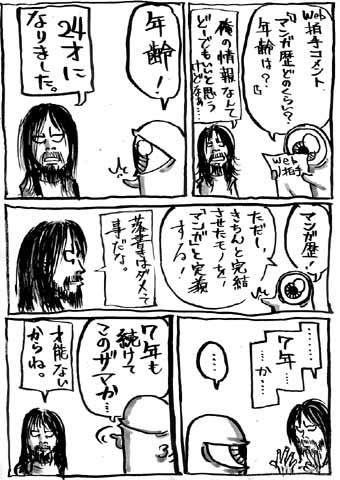 Web拍手コメント
『マンガ歴どのくらい?
年齢は?』
Web
拍手
俺の情報なんて
どーでもいいと思う
けどなぁ…
年齢!
24才に
なりました。
マンガ歴!
ただし、
きちんと完結
させたモノを
「マンガ」と定義
する!
落書きはダメって
事だな。
……
……7年
……か…
……
7年も
続けて
このザマか…
才能ない
からね。